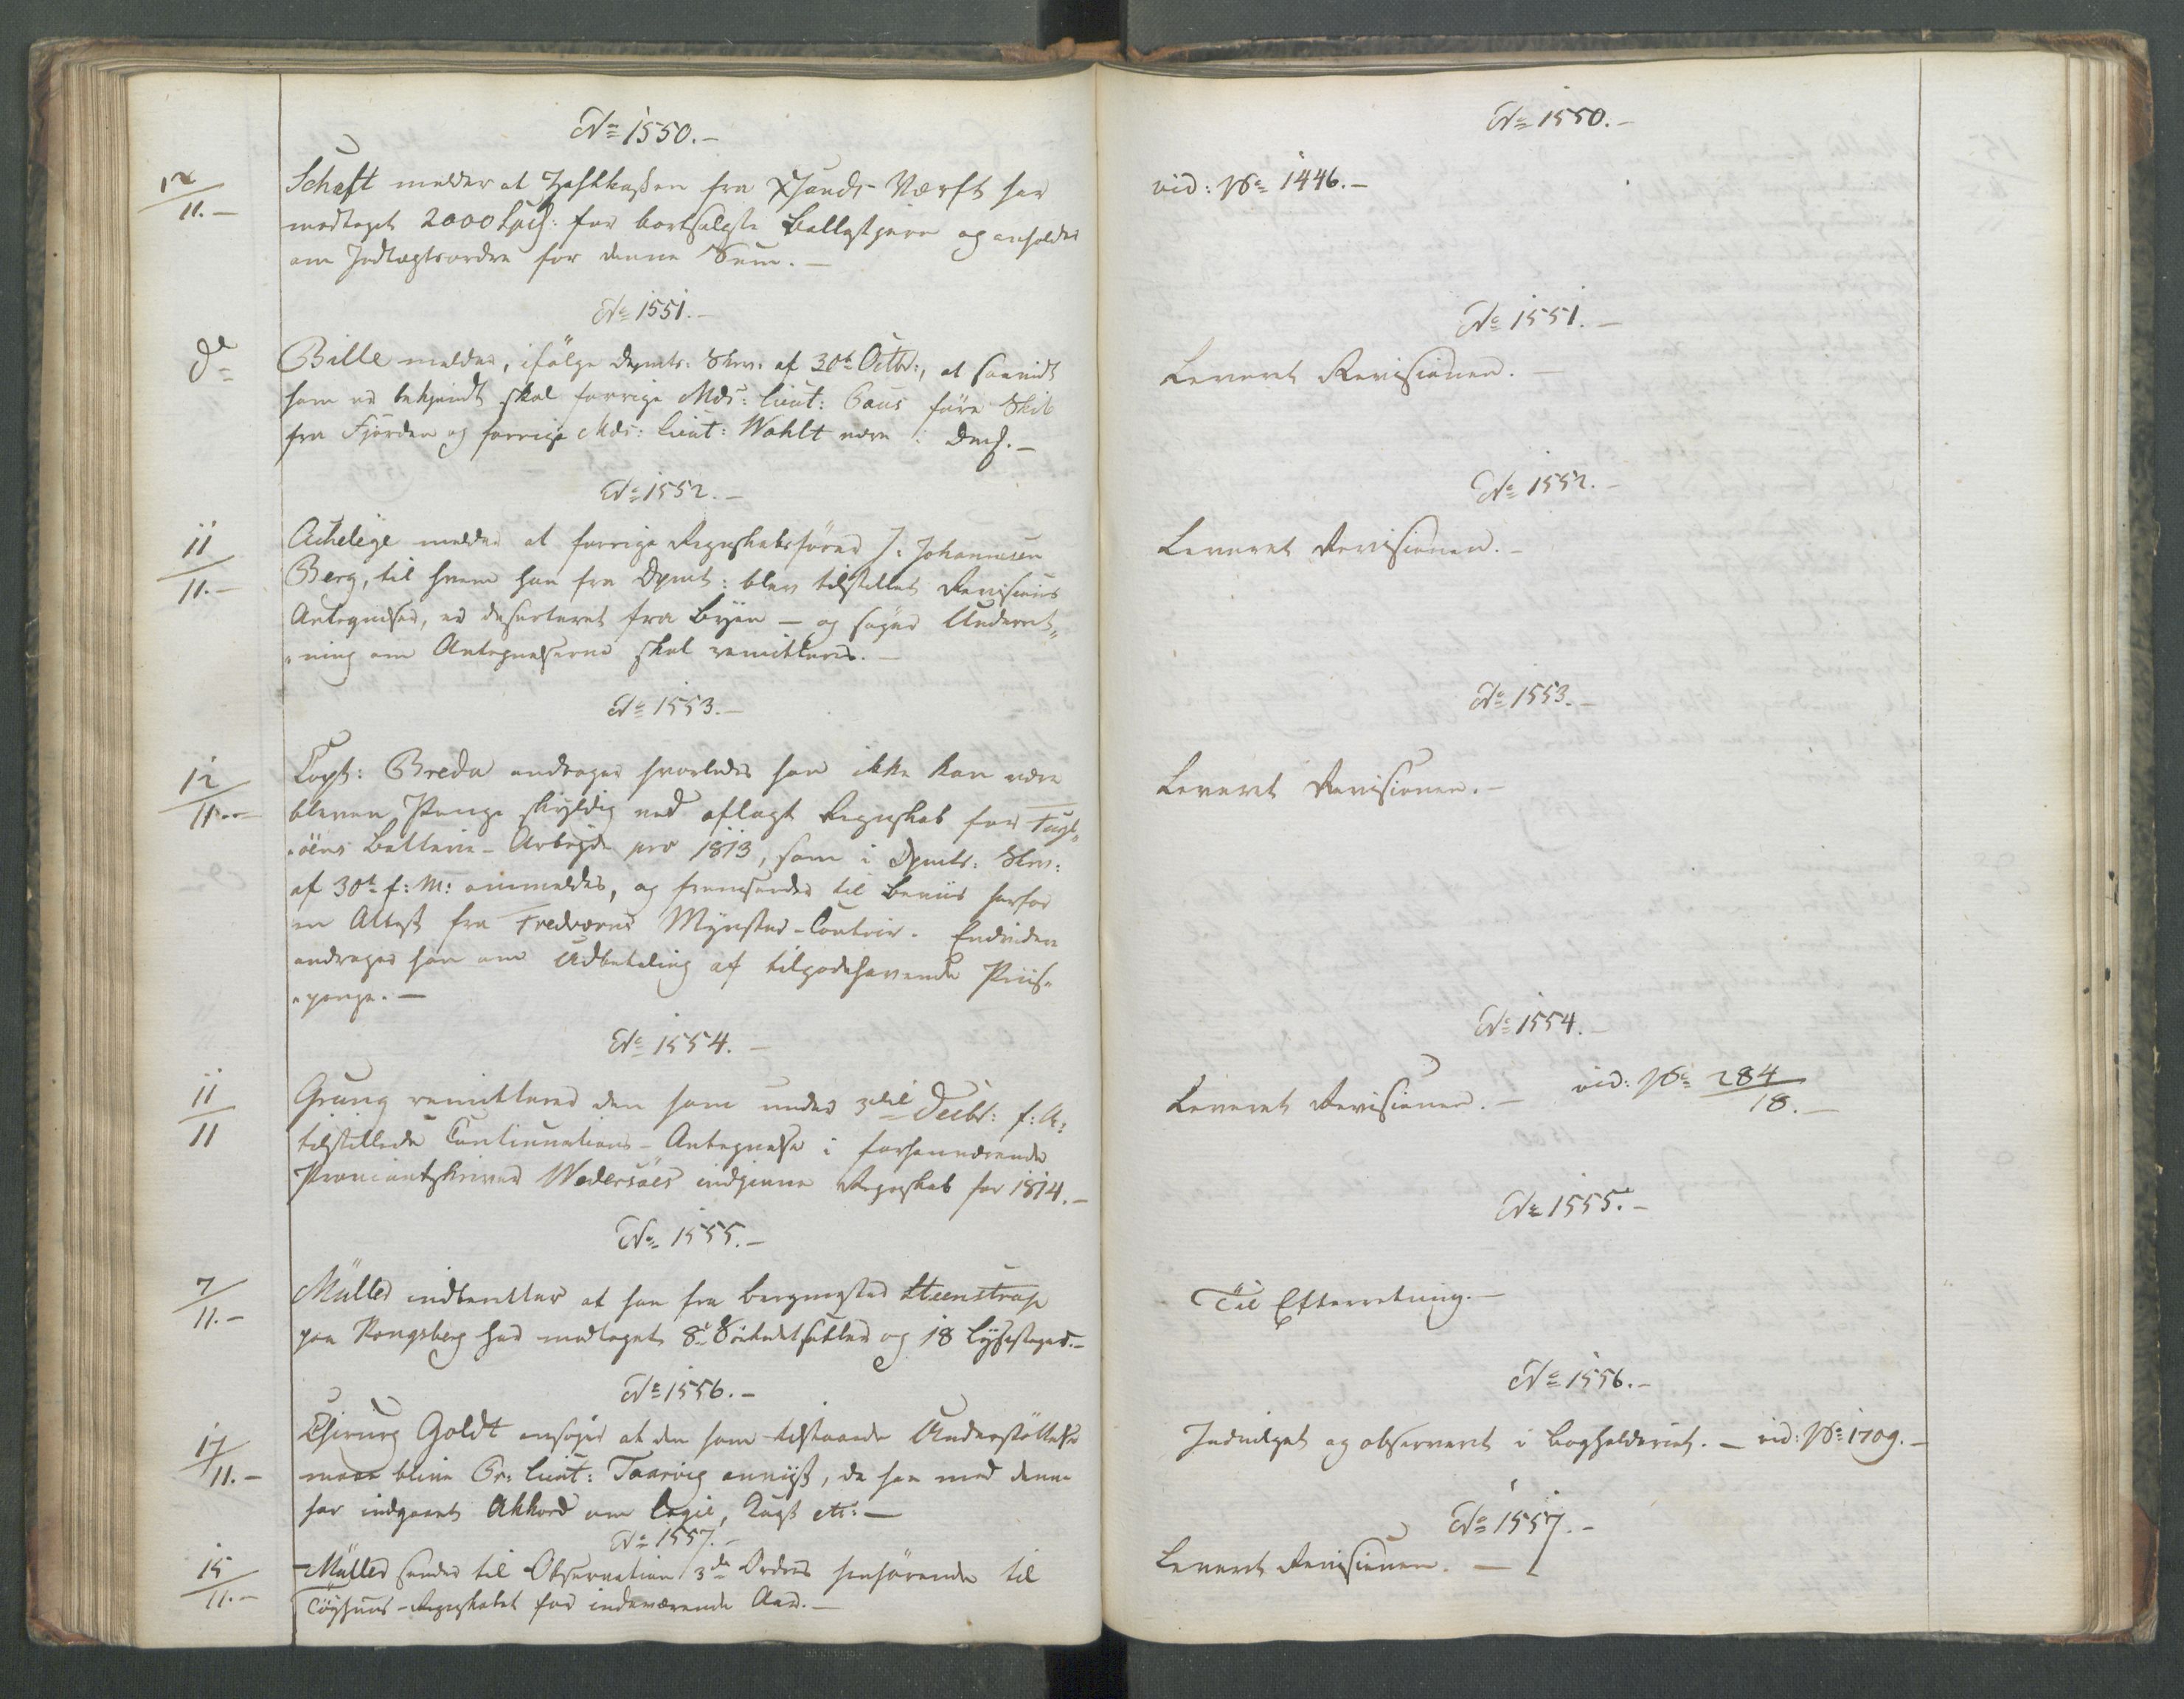 No 1550.-
12/11.-
Schaft melder at Zahlkassen fra Xsands Værft har
modtaget 2000 Spd: for bortsolgte Ballastjern og anholder
om Indtægtsordre for denne Sum.-
No 1551.-
do
Bille melder, ifölge Dpmts: Skrv: af 30te Octbr:, at saavidt
som er bekjendt skal forrige Mds: Lieut: Paus före Skib
fra Fjorden og forrige Mds: Lieut: Wahlt være i Dmk.-
No 1552.-
11/11.-
Acheleye melder at forrige Regnskabsförer J: Johannesen
Berg, til hvem han fra Dpmt: blev tilstillet Revisions
Antegnelser, er deserteret fra Byen - og söger Underret„
„ning om Antegnelserne skal remitteres.-
No 1553.-
12/11.-
Capt: Breda andrager hvorledes han ikke kan være
bleven Penge skyldig ved aflagt Regnskab for Fugl„
„öens Batterie-Arbeyde pro 1813, som i Dpmts: Skrv:
af 30te f: M: ommeldes, og fremsender til Beviis herfor
en Attest fra Fredværns Mynster-Contoir. Endvidere
andrager han om Udbetaling af tilgodehavende Priis„
„penge.-
No 1554.-
11/11
Grung remitterer den ham under 3die Decbr: f: A:
tilstillede Continuations-Antegnelse i forhenværende
Proviantskriver Wedersöes indgivne Regnskab for 1814.-
No 1555.-
7/11.-
Müller indberetter at han fra Bergmester Steenstrup
paa Kongsberg har modtaget 8te og 18 Lysestager.-
No 1556.-
17/11.-
Chirurg Goldt ansöger at den ham tilstaaede Understöttelse
maae blive Pr: Lieut: Taarvig anviist, da han med denne
har indgaaet Akkord om Logie, Kost etc:-
No 1557.-
15/11.-
Müller sender til Observation 3de Ordres henhörende til
Töyhuus-Regnskabet for indeværende Aar.-
No 1550.-
vid: No 1446.-
No 1551.-
Leveret Revisionen.-
No 1552.-
Leveret Revisionen.-
No 1553.-
Leveret Revisionen.-
No 1554.-
Leveret Revisionen.- vid: No 284/18.-
No 1555.-
Til Efterretning.-
No 1556.-
Indvilget og observeret i Bogholderiet.- vid: No 1709.-
No 1557.-
Leveret Revisionen.-